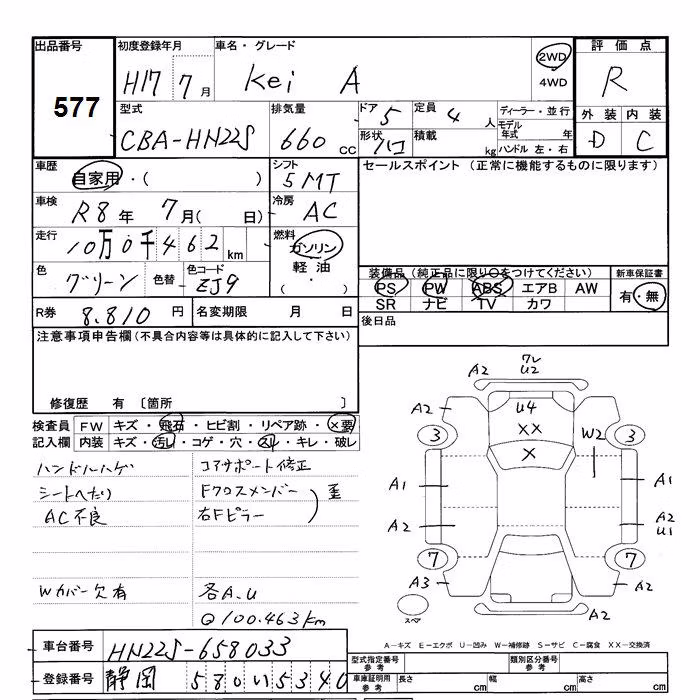 出品番号 577
初度登録年月 H17 7月
車名・グレード Kei A
2WD
4WD
評価点 R
外装 D 内装 C
型式 CBA-HN22S
排気量 660 CC
ドア 5 定員 4 人
形状 積載 kg
ディーラー・並行
モデル年式 年
ハンドル 左・右
車歴 自家用・( )
シフト 5MT
セールスポイント (正常に機能するものに限ります)
車検 R8年 7月( 日)
冷房 AC
走行 10万0千462km
燃料 ガソリン
軽油
( ・ )
色 グリーン 色替 色コード ZJ9
装備品(純正品に限り○をつけてください) 新車保証書
PS PW ABS エアB AW 有・無
SR ナビ TV カワ
R券 8.810円 名変期限 月 日
後日品
注意事項申告欄(不具合内容等は具体的に記入して下さい)
修復歴 有 〔箇所 〕
検査員 FW キズ・飛石・ヒビ割・リペア跡・×要
記入欄 内装 キズ・汚れ・コゲ・穴・スリ・キレ・破レ
ハンドルハゲ コアサポート修正
シートへたり Fクロスメンバー 歪
AC不良 右Fピラー
Wカバー欠有 各A.U
Q100.463km
A2 ワレ
U2
A2 U4 A2
3 XX W2 3
X
A1 A1
A2 A2
U1
7 7
A3 A2
スペア A2
A-キズ E-エクボ U-凹み W-補修跡 S-サビ C-腐食 XX-交換済
車台番号 HN22S-658033
登録番号 静岡 580 い 5340
型式指定番号 参考 類別区分番号 参考
車庫証明用 参考 長さ cm 幅 cm 高さ cm